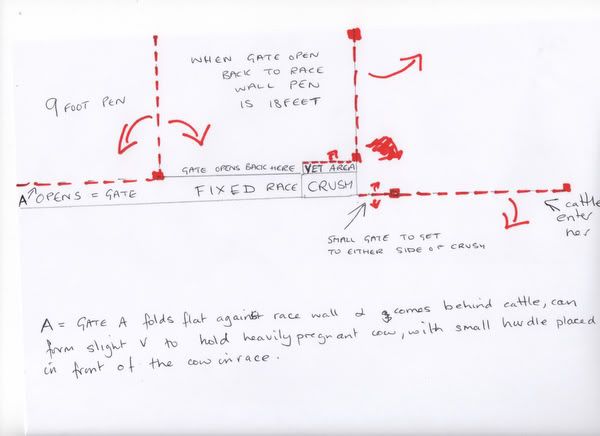 WHEN GATE OPEN
BACK TO RACE
WALL PEN
IS 18FEET
9 FOOT PEN
GATE OPENS BACK HERE
VET AREA
A OPENS = GATE
FIXED RACE
CRUSH
cattle
enter
her
SMALL GATE TO GET
TO EITHER SIDE OF CRUSH
A = GATE A folds flat against race wall & comes behind cattle, can
form slight V to hold heavily pregnant cow, with small hurdle placed
in front of the cow in race.